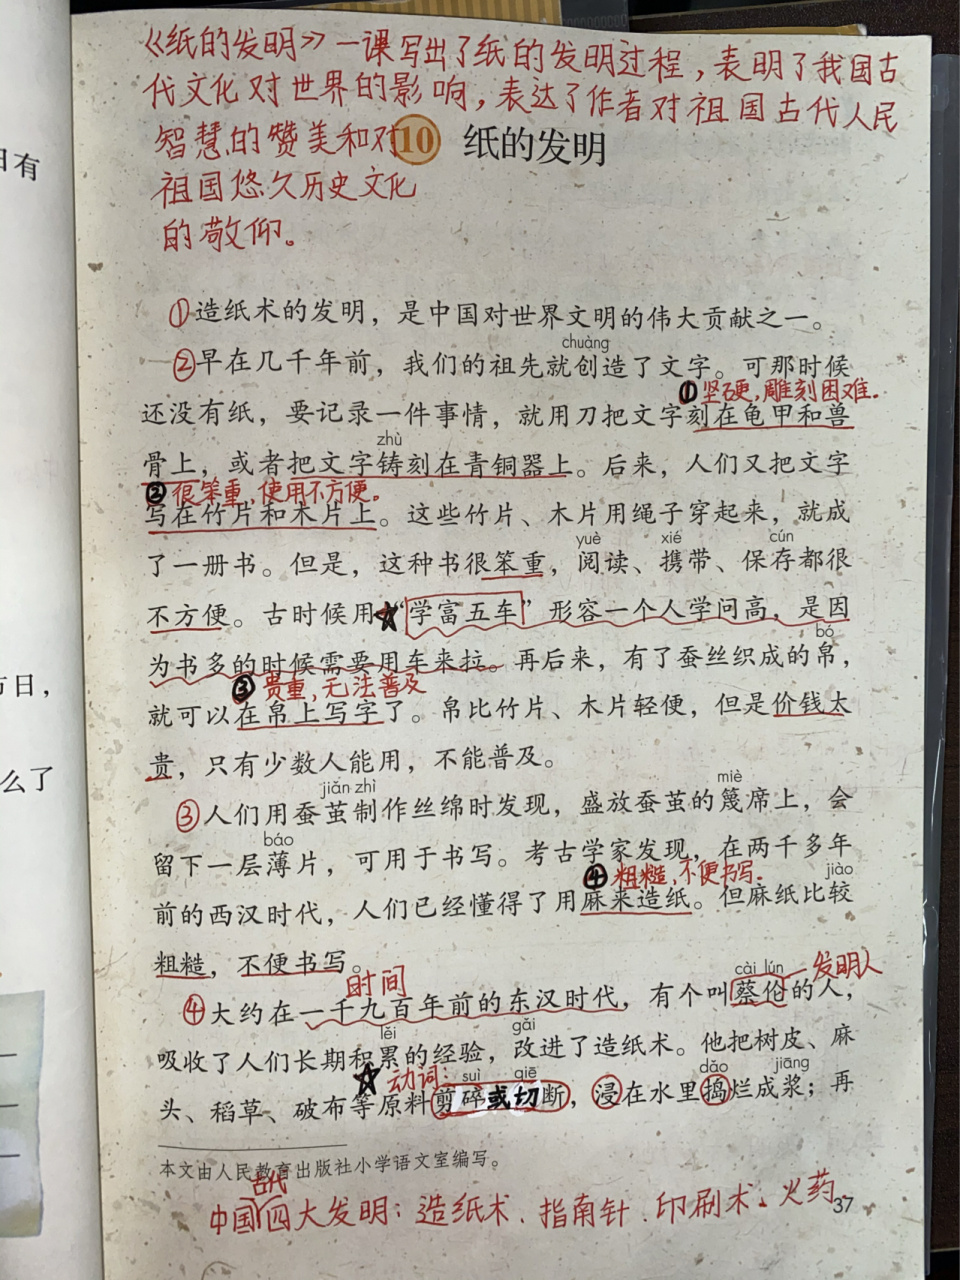 《纸的发明》一课写出了纸的发明过程，表明了我国古
代文化对世界的影响，表达了作者对祖国古代人民
智慧的赞美和对
祖国悠久历史文化
的敬仰。
10 纸的发明
①造纸术的发明，是中国对世界文明的伟大贡献之一。
chuàng
②早在几千年前，我们的祖先就创造了文字。可那时候
①坚硬，雕刻困难.
还没有纸，要记录一件事情，就用刀把文字刻在龟甲和兽
zhù
骨上，或者把文字铸刻在青铜器上。后来，人们又把文字
②很笨重，使用不方便。
写在竹片和木片上。这些竹片、木片用绳子穿起来，就成
yuè xié cún
了一册书。但是，这种书很笨重，阅读、携带、保存都很
不方便。古时候用“学富五车”形容一个人学问高，是因
bó
为书多的时候需要用车来拉。再后来，有了蚕丝织成的帛，
③贵重，无法普及
就可以在帛上写字了。帛比竹片、木片轻便，但是价钱太
贵，只有少数人能用，不能普及。
jiǎn zhì miè
③人们用蚕茧制作丝绵时发现，盛放蚕茧的篾席上，会
báo
留下一层薄片，可用于书写。考古学家发现，在两千多年
④粗糙，不便书写.
jiào
前的西汉时代，人们已经懂得了用麻来造纸。但麻纸比较
粗糙，不便书写。
时间
cài lún
发明人
④大约在一千九百年前的东汉时代，有个叫蔡伦的人，
lěi gǎi
吸收了人们长期积累的经验，改进了造纸术。他把树皮、麻
动词：
suì qiē dǎo jiāng
头、稻草、破布等原料剪碎或切断，浸在水里捣烂成浆；再
本文由人民教育出版社小学语文室编写。
古代
中国四大发明：造纸术、指南针、印刷术、火药
37
日有
方日，
么了